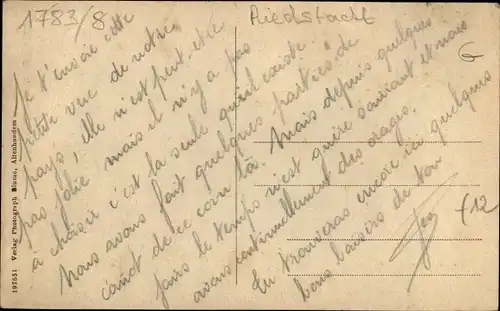 1783/8
Riedstadt
6
Je t'envoie cette
petite vue de notre
pays, elle n'est peut-être
pas jolie mais il n'y a pas
à choisir c'est la seule qu'il existe.
Nous avons fait quelques parties de
canot de ce coin là. Mais depuis quelques
jours le temps n'est guère souriant et nous
avons continuellement des orages.
Tu trouveras encore ici quelques
bons baisirs de ton
f12
197551 Verlag Photograph Blume, Altenhundem